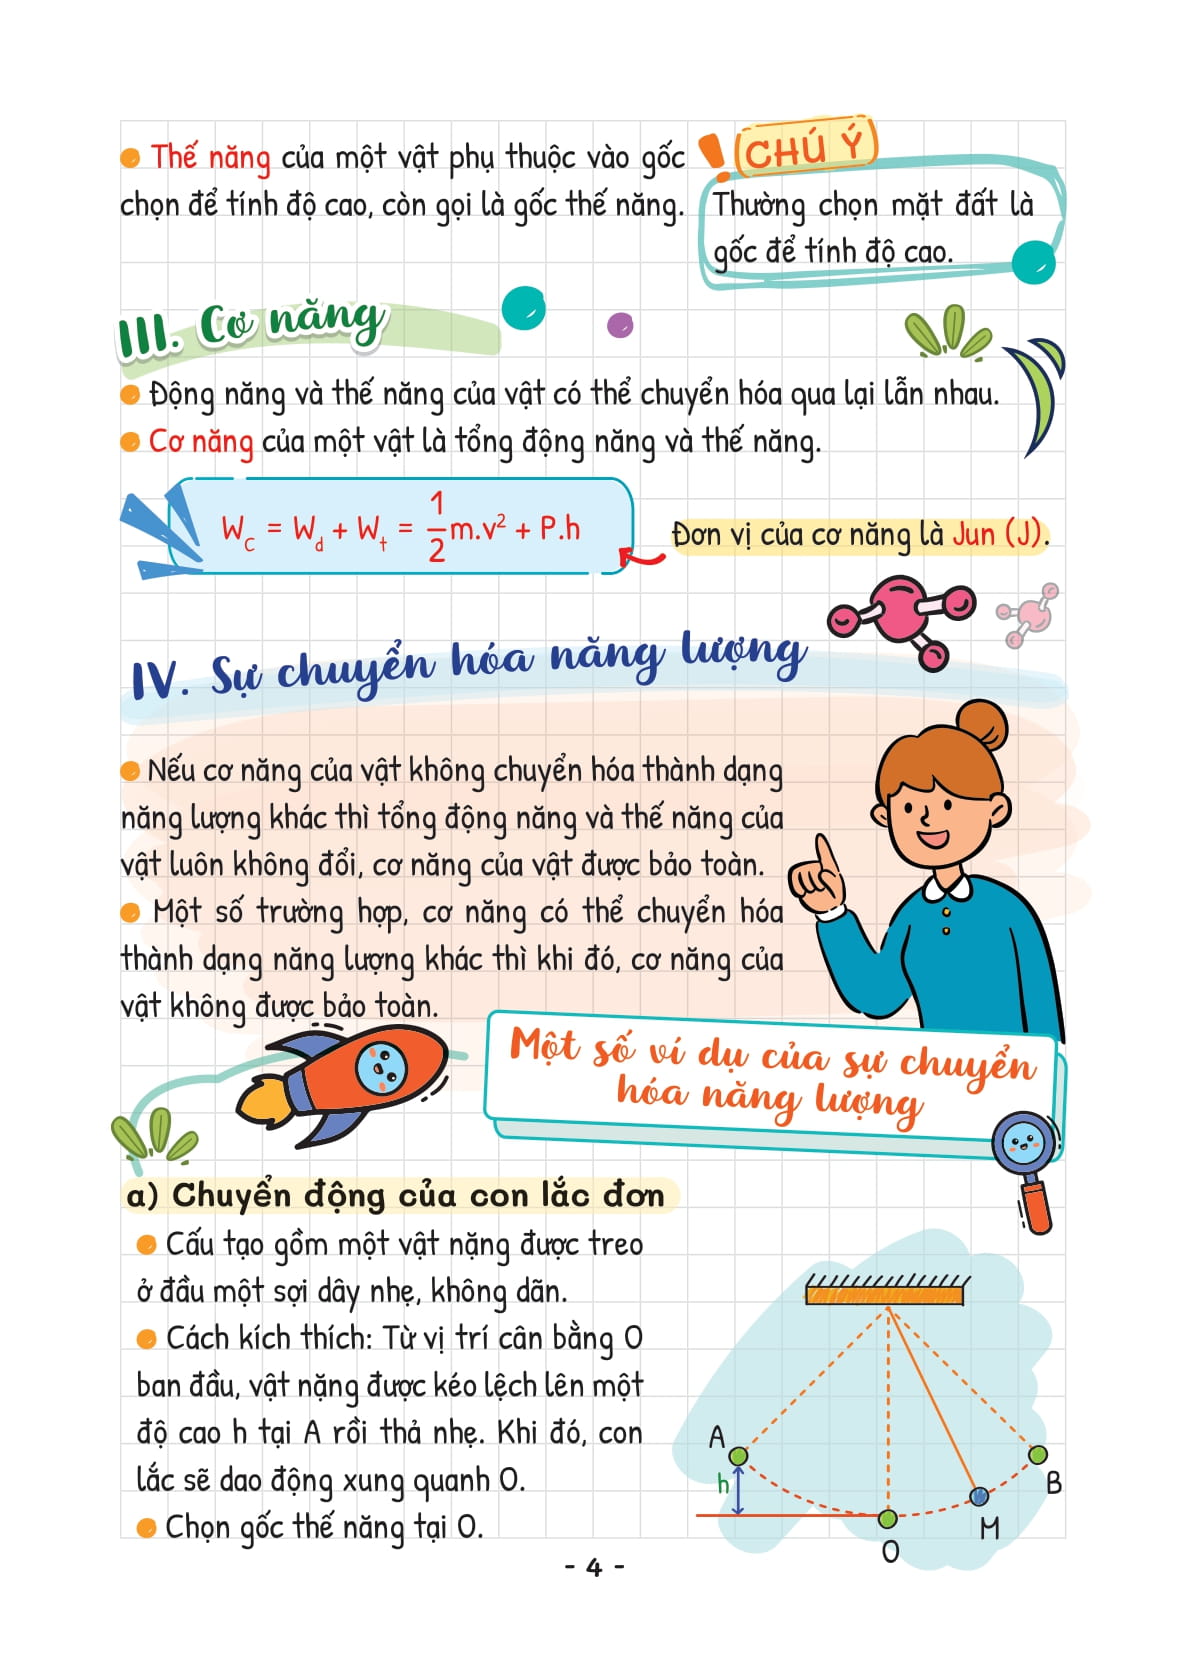 Thế năng của một vật phụ thuộc vào gốc
chọn để tính độ cao, còn gọi là gốc thế năng.
CHÚ Ý
Thường chọn mặt đất là
gốc để tính độ cao.
III. Cơ năng
Động năng và thế năng của vật có thể chuyển hóa qua lại lẫn nhau.
Cơ năng của một vật là tổng động năng và thế năng.
W_C = W_d + W_t = 1/2 m.v² + P.h
Đơn vị của cơ năng là Jun (J).
IV. Sự chuyển hóa năng lượng
Nếu cơ năng của vật không chuyển hóa thành dạng
năng lượng khác thì tổng động năng và thế năng của
vật luôn không đổi, cơ năng của vật được bảo toàn.
Một số trường hợp, cơ năng có thể chuyển hóa
thành dạng năng lượng khác thì khi đó, cơ năng của
vật không được bảo toàn.
Một số ví dụ của sự chuyển
hóa năng lượng
a) Chuyển động của con lắc đơn
Cấu tạo gồm một vật nặng được treo
ở đầu một sợi dây nhẹ, không dãn.
Cách kích thích: Từ vị trí cân bằng O
ban đầu, vật nặng được kéo lệch lên một
độ cao h tại A rồi thả nhẹ. Khi đó, con
lắc sẽ dao động xung quanh O.
Chọn gốc thế năng tại O.
A
h
B
M
O
- 4 -